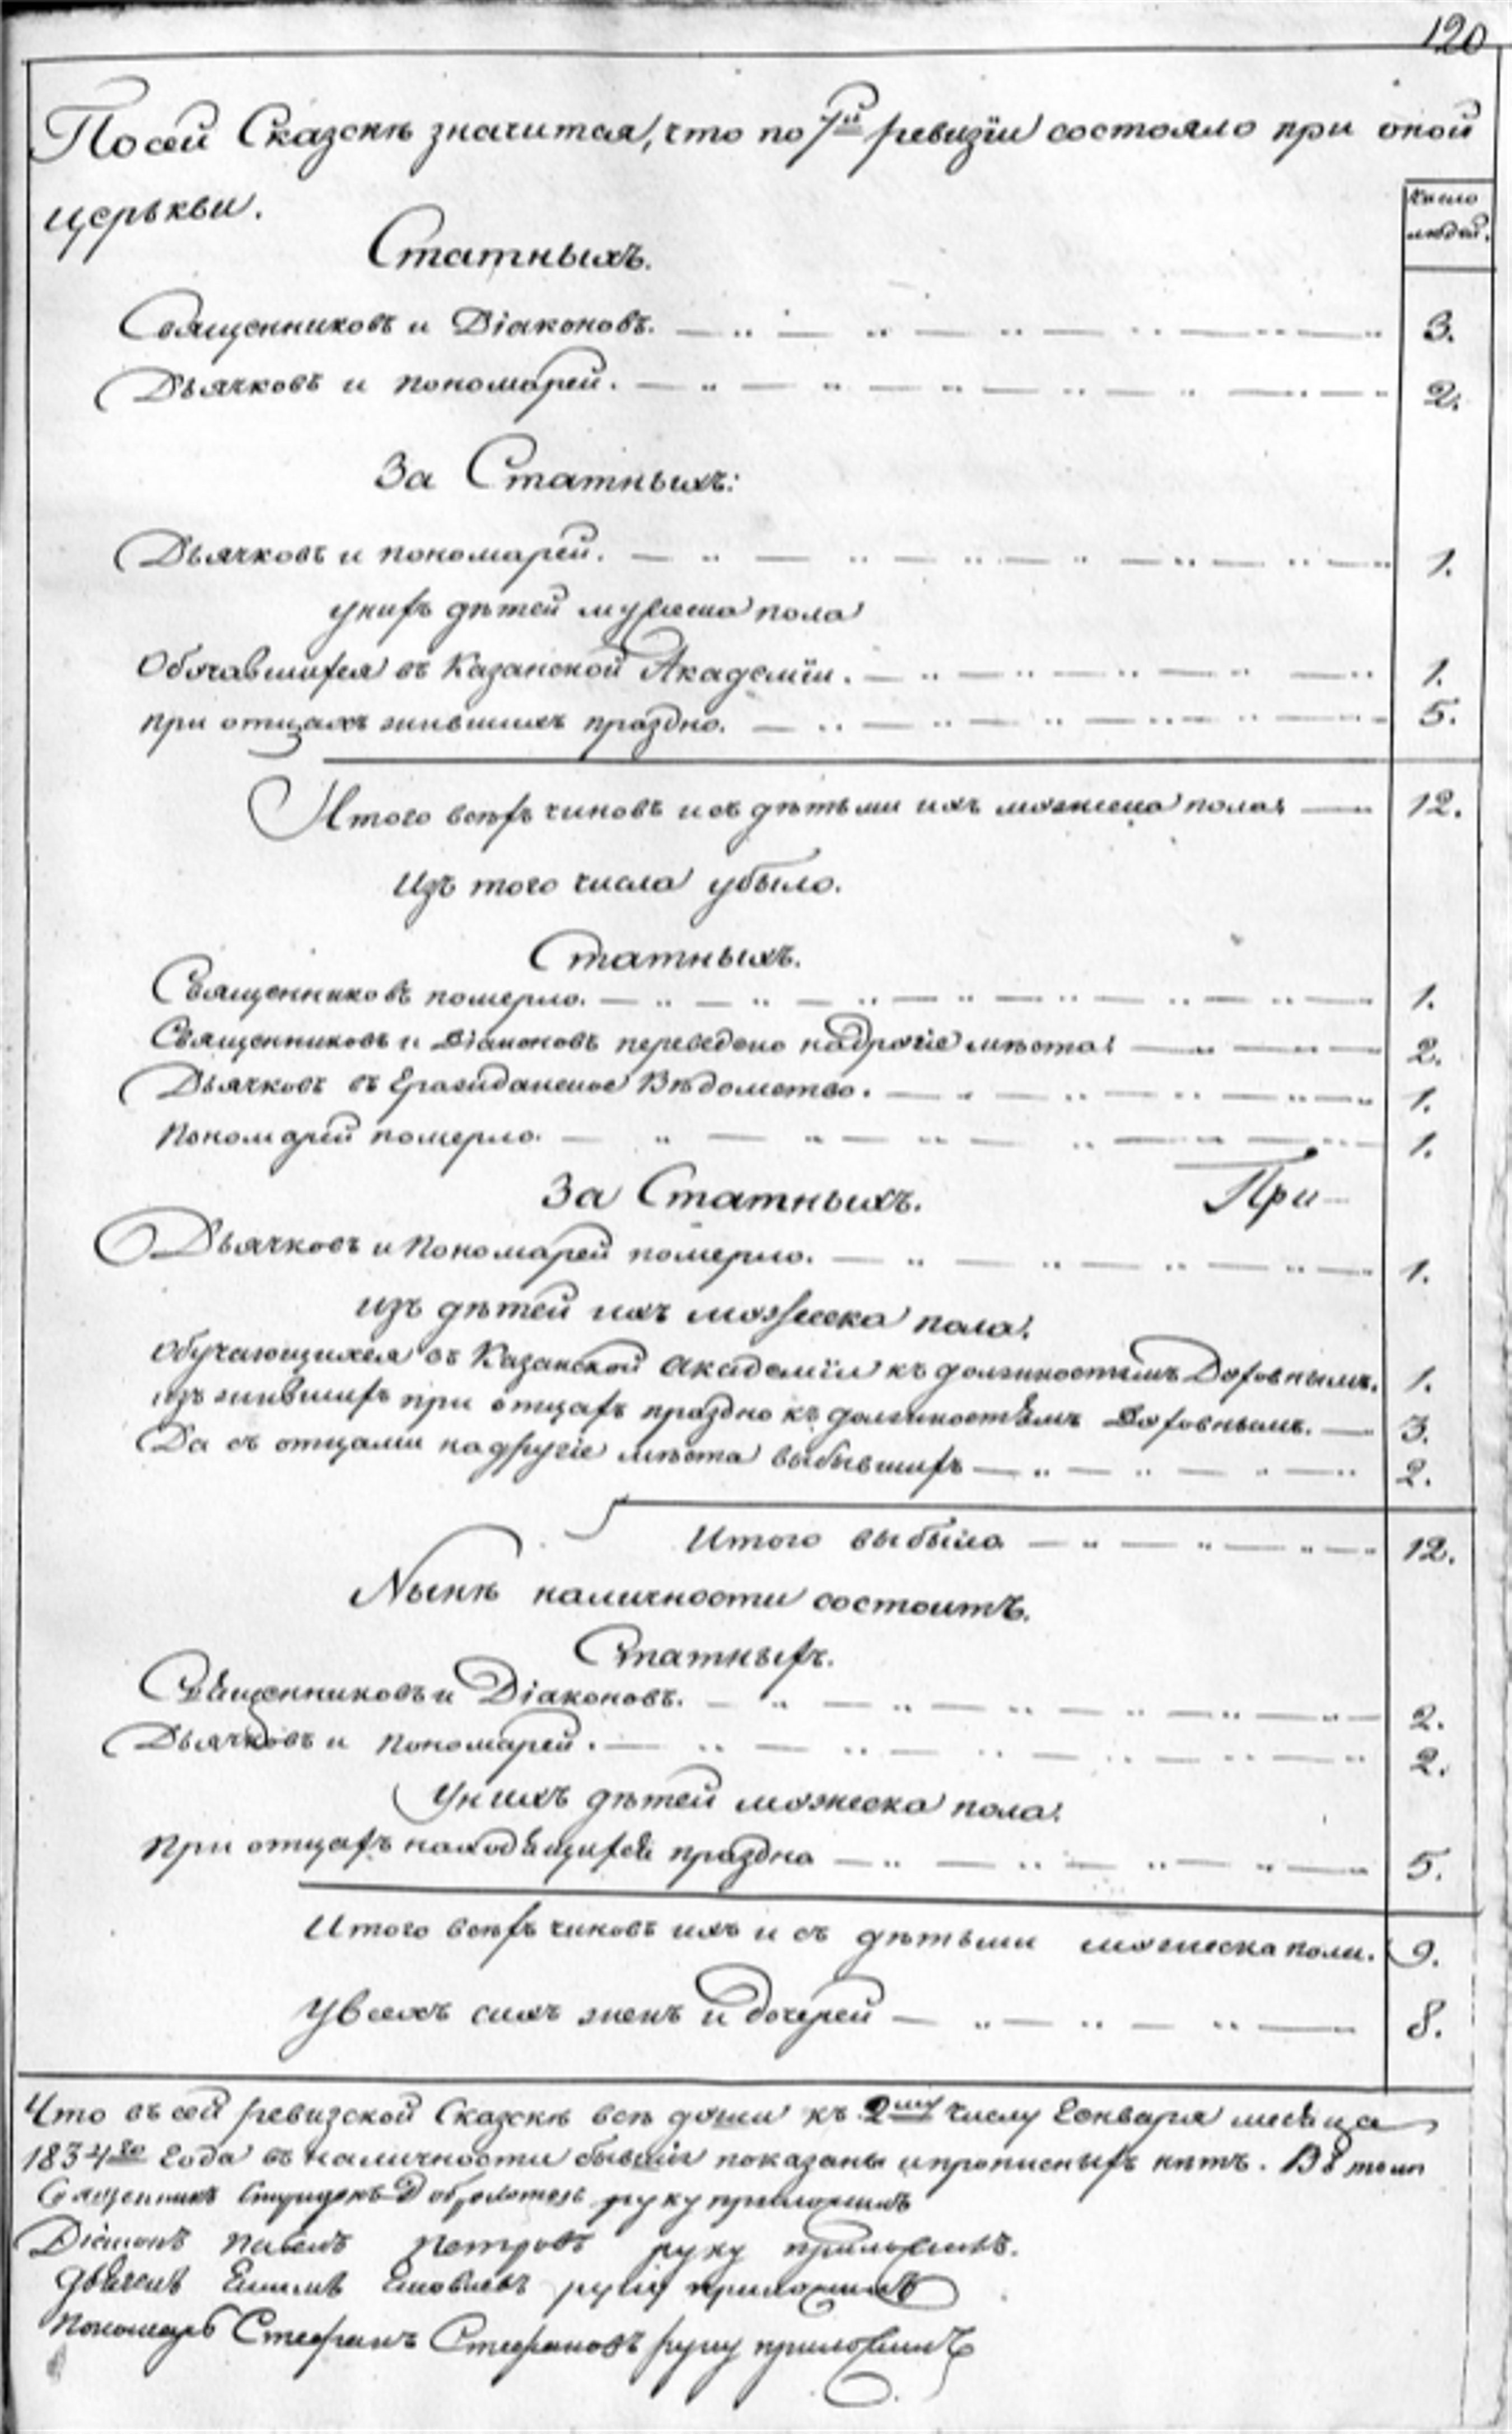 120
По сей Сказскѣ значитая, что по 7й ревизіи состояло при оной
церькви.
Число
людей.
Статныхъ.
Священниковъ и Діаконовъ. 3.
Дьячковъ и пономарей. 2.
За Статныхъ:
Дьячковъ и пономарей. 1.
у нихъ дѣтей мужеска пола
Обучавшихся въ Казанской Академіи. 1.
при отцахъ жившихъ праздно. 5.
Итого всѣхъ чиновъ и съ дѣтьми ихъ мужеска пола 12.
Изъ того числа убыло.
Статныхъ.
Священниковъ померло. 1.
Священниковъ и Діаконовъ переведено на другіе мѣста 2.
Дьячковъ въ Гражданское Вѣдомство. 1.
Пономарей померло. 1.
За Статныхъ. При
Дьячковъ и Пономарей померло. 1.
изъ дѣтей ихъ мужеска пола.
Обучающихся въ Казанской Академіи къ должностямъ Духовнымъ. 1.
изъ жившихъ при отцахъ праздно къ должностямъ Духовнымъ. 3.
Да съ отцами на другіе мѣста выбывшихъ 2.
Итого выбыло 12.
Нынѣ наличности состоитъ.
Статныхъ.
Священниковъ и Діаконовъ. 2.
Дьячковъ и пономарей. 2.
У нихъ дѣтей мужеска пола.
При отцахъ находящихся праздно 5.
Итого всѣхъ чиновъ ихъ и съ дѣтьми мужеска пола. 9.
У всехъ сихъ женъ и дочерей 8.
Что въ сей ревизской Сказскѣ всѣ души къ 2му числу Генваря месяца
1834го Года въ наличности бывшіе показаны и прописныхъ нѣтъ. Въ томъ
Священникъ руку приложилъ
Діаконъ Петровъ руку приложилъ.
дьячекъ руку приложилъ
Пономарь Стефанъ Стефановъ руку приложилъ